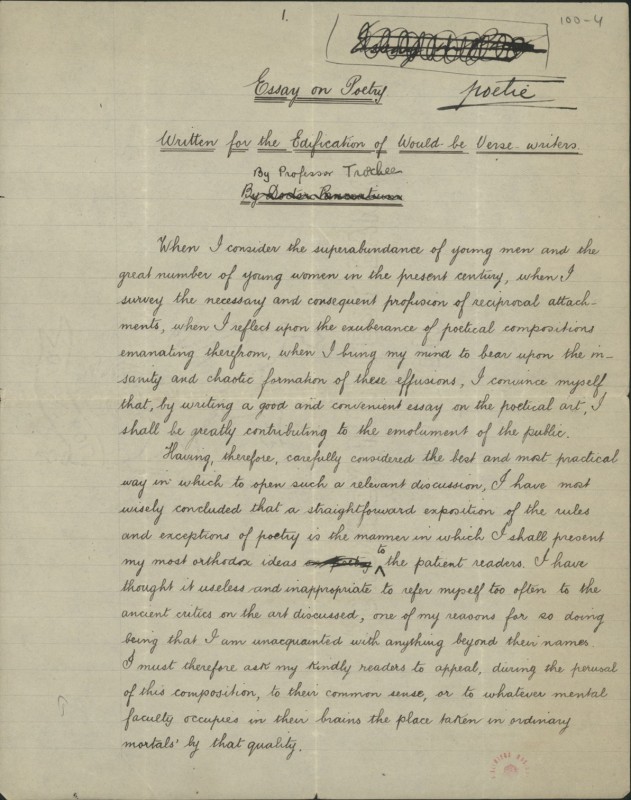 1.
100-4
Essay on Poetry
poetic
Written for the Edification of Would-be Verse-writers.
By Professor Trochee
When I consider the superabundance of young men and the
great number of young women in the present century, when I
survey the necessary and consequent profusion of reciprocal attach-
ments, when I reflect upon the exuberance of poetical compositions
emanating therefrom, when I bring my mind to bear upon the in-
sanity and chaotic formation of these effusions, I convince myself
that, by writing a good and convenient essay on the poetical art, I
shall be greatly contributing to the emolument of the public.
Having, therefore, carefully considered the best and most practical
way in which to open such a relevant discussion, I have most
wisely concluded that a straightforward exposition of the rules
and exceptions of poetry is the manner in which I shall present
my most orthodox ideas to the patient readers. I have
thought it useless and inappropriate to refer myself too often to the
ancient critics on the art discussed, one of my reasons for so doing
being that I am unacquainted with anything beyond their names.
I must therefore ask my kindly readers to appeal, during the perusal
of this composition, to their common sense, or to whatever mental
faculty occupies in their brains the place taken in ordinary
mortals' by that quality.